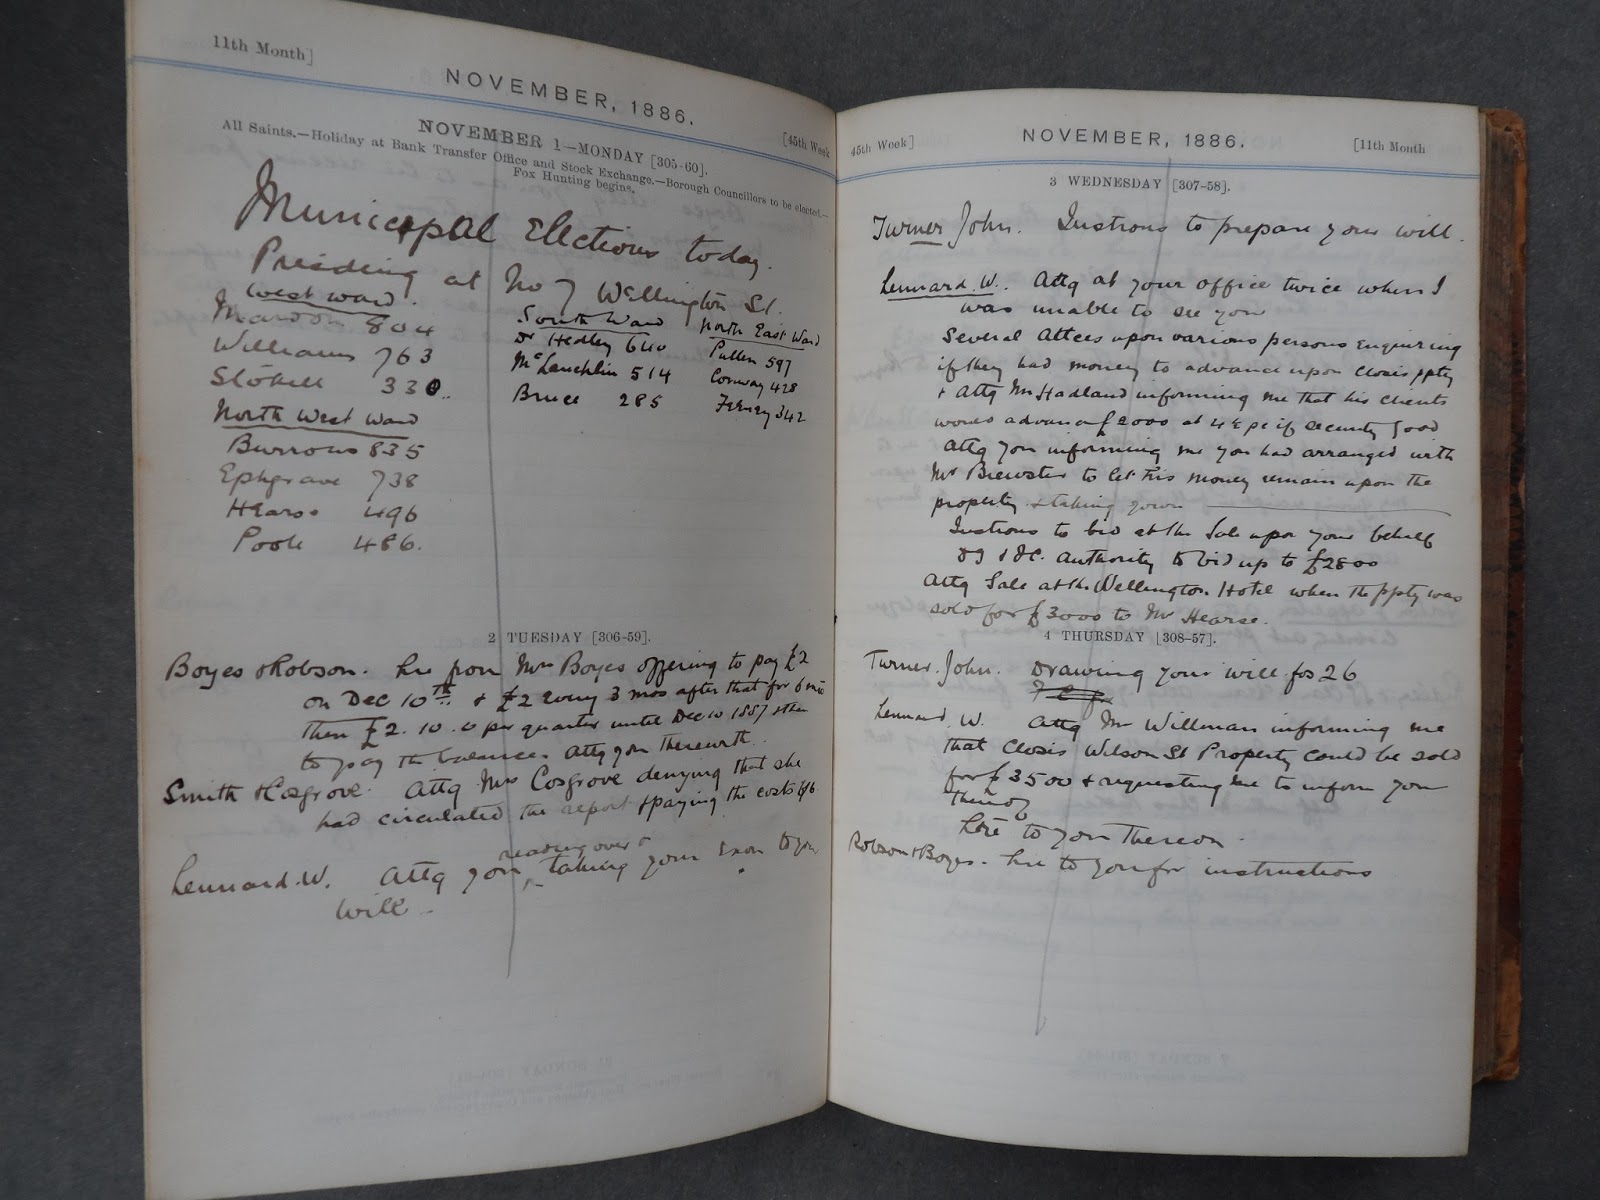 11th Month]
NOVEMBER, 1886.
[45th Week
NOVEMBER 1—MONDAY [305-60].
All Saints.—Holiday at Bank Transfer Office and Stock Exchange.—Borough Councillors to be elected.—
Fox Hunting begins.
Municipal Elections today.
Presiding at No 7 Wellington St.
West Ward.
Mardon 804
Williams 763
Stokell 330
North West Ward
Burrows 835
Ephgrave 738
Hearse 496
Poole 486.
South Ward
Dr Hedley 640
McLauchlin 514
Bruce 285
North East Ward
Pullen 597
Conway 428
342
2 TUESDAY [306-59].
Boyes & Robson. Lre from Mrs Boyes offering to pay £2
on Dec 10th & £2 every 3 mos after that for 6 mos
then £2. 10. 0 per quarter until Dec 10 1887 & then
to pay the balance. Attg you therewith
Smith & Cosgrove. Attg Mrs Cosgrove denying that she
had circulated the report & paying the costs 6/6
reading over &
Lennard. W. Attg you taking your to your
Will.
45th Week]
NOVEMBER, 1886.
[11th Month
3 WEDNESDAY [307-58].
Turner John. Instrons to prepare your will.
Lennard. W. Attg at your office twice when I
was unable to see you
Several Attces upon various persons enquiring
if they had money to advance upon Closes ppty
& Attg Mr Hadland informing me that his clients
would advance £2000 at 4½ pc if security good
Attg you informing me you had arranged with
Mr Brewster to let his money remain upon the
property & taking your
Instrons to bid at the Sale upon your behalf
authority to bid up to £2800
Attg Sale at the Wellington Hotel when the ppty was
sold for £3000 to Mr Hearse.
4 THURSDAY [308-57].
Turner. John. Drawing your will fos 26
Lennard. W. Attg Mr Willman informing me
that Closes Wilson St Property could be sold
for £3500 & requesting me to inform you
thereof
Lre to you thereon.
Robson & Boyes. Lre to you for instructions